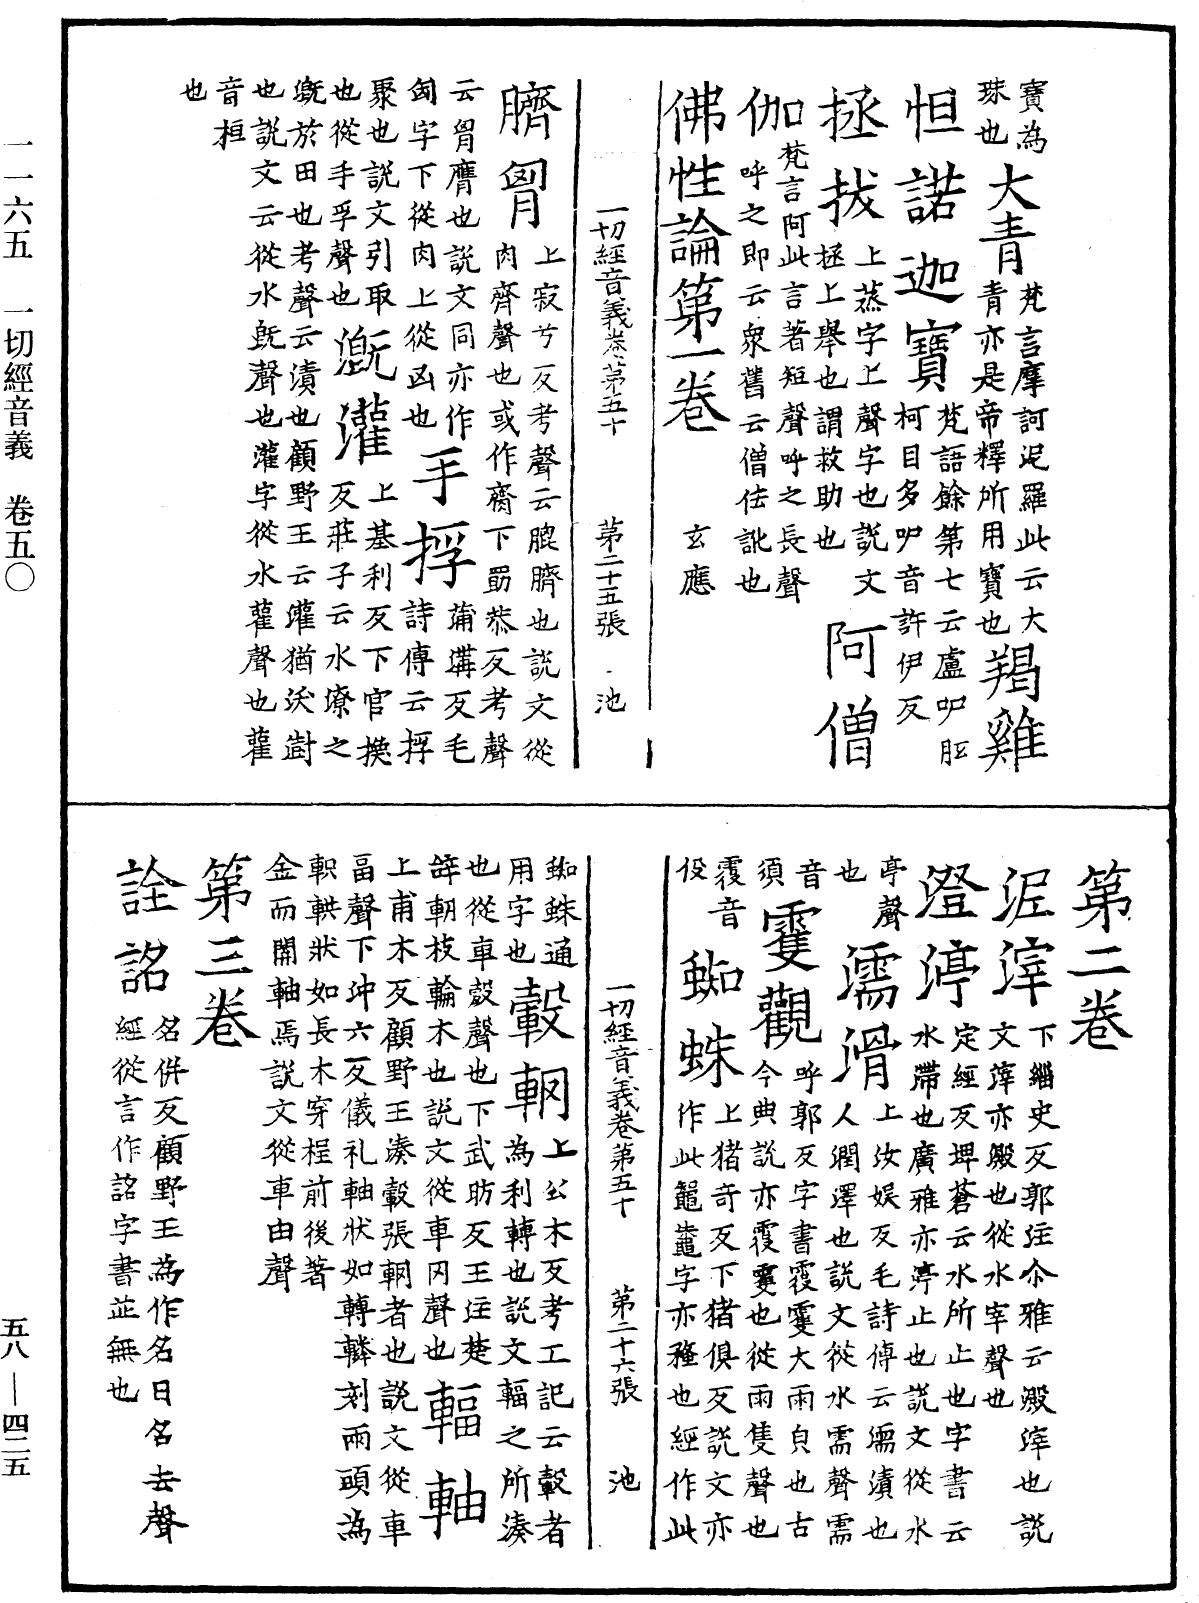 寶為珠也
大青 梵言摩訶泥羅此云大青亦是帝釋所用寶也
羯雞怛諾迦寶 梵語餘第七云盧呬胝柯目多呬音許伊反
拯拔 上蒸字上聲字也説文拯上舉也謂救助也
阿僧伽 梵言阿此言著短聲呼之長聲呼之即云衆舊云僧佉訛也
佛性論第一卷 玄應
一切經音義卷第五十 第二十五張 池
臍胷 上寂兮反考聲云腲臍也説文從肉齊聲也或作齎下勖恭反考聲云胷膺也説文同亦作匈字下從肉上從凶也
手捊 蒲溝反毛詩傳云捊聚也説文引取也從手孚聲也
漑灌 上基利反下官換反莊子云水療之漑於田也考聲云漬也顧野王云灌猶沃澍也説文云從水既聲也灌字從水雚聲也雚音桓也
第二卷
泥滓 下緇史反郭注尒雅云澱滓也説文滓亦澱也從水宰聲也
澄渟 定經反埤蒼云水所止也字書云水滯也廣雅亦渟止也説文從水亭聲也
濡滑 上汝娛反毛詩傳云濡漬也人潤澤也説文從水需聲需音須
霍觀 呼郭反字書霍靃大雨皃也古今典説亦霍靃也從雨隻聲也霍音伇
蜘蛛 上猪奇反下猪俱反説文亦作此鼅鼄字亦蝥也經作此蜘蛛通用字也
轂輞 上公木反考工記云轂者為利轉也説文輻之所湊也從車㱿聲也下武昉反王注楚辝輞枝輪木也説文從車罔聲也
輻軸 上甫木反顧野王湊轂張輞者也説文從車畐聲下沖六反儀礼軸狀如轉轔刻兩頭為軹輁狀如長木穿桯前後著金而關軸焉説文從車由聲
第三卷
詮詺 名併反顧野王為作名日名去聲經從言作詺字書並無也
一切經音義卷第五十 第二十六張 池
一一六五 一切經音義 卷五〇
五八—四二五